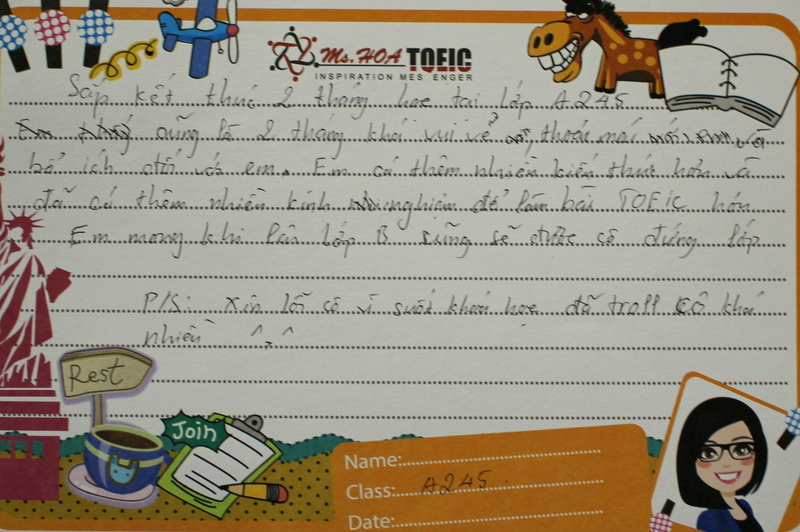 Ms. HOA TOEIC
INSPIRATION MESSENGER
Sắp kết thúc 2 tháng học tại lớp A245
cũng là 2 tháng khá vui vẻ, thoải mái và
bổ ích đối với em. Em có thêm nhiều kiến thức hơn và
đã có thêm nhiều kinh nghiệm để làm bài TOEIC hơn
Em mong khi lên lớp B cũng sẽ được cô đứng lớp
P/S: Xin lỗi cô vì suốt khoá học đã troll cô khá
nhiều ^,^
Rest
Join
Name:
Class: A245
Date: